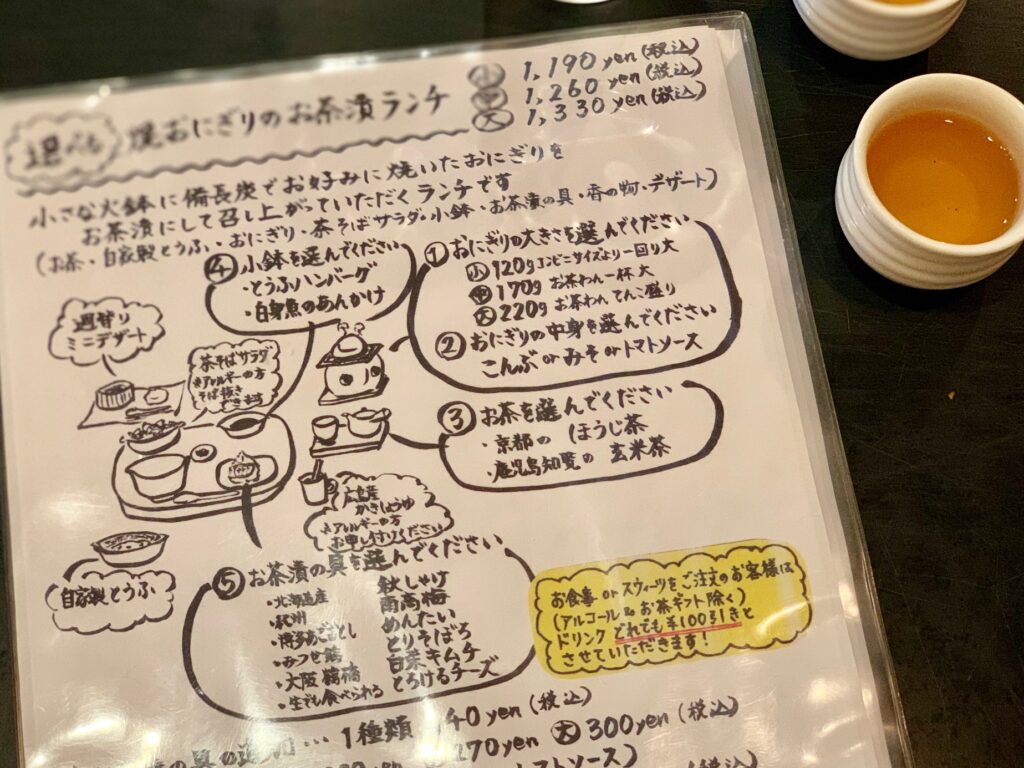 選べる 焼おにぎりのお茶漬ランチ
小 1,190 yen (税込)
中 1,260 yen (税込)
大 1,330 yen (税込)
小さな火鉢に備長炭でお好みに焼いたおにぎりを
お茶漬にして召し上がっていただくランチです
(お茶・自家製とうふ・おにぎり・茶そばサラダ・小鉢・お茶漬の具・香の物・デザート)
①おにぎりの大きさを選んでください
小 120g コンビニサイズより一回り大
中 170g お茶わん一杯大
大 220g お茶わんてんこ盛り
②おにぎりの中身を選んでください
こんぶ or みそ or トマトソース
③お茶を選んでください
・京都の ほうじ茶
・鹿児島知覧の 玄米茶
④小鉢を選んでください
・とうふハンバーグ
・白身魚のあんかけ
週替り
ミニデザート
茶そばサラダ
*アレルギーの方
そば抜き
できます
広島産
かきしょうゆ
*アレルギーの方
お申し付けください
自家製とうふ
⑤お茶漬の具を選んでください
・北海道産 秋しゃけ
・紀州 南高梅
・博多あごおとし めんたい
・みつせ鶏 とりそぼろ
・大阪 鶴橋 白菜キムチ
・生でも食べられる とろけるチーズ
お食事 or スウィーツをご注文のお客様は
(アルコール & お茶ギフト除く)
ドリンク どれでも¥100引きと
させていただきます!
の具の追加… 1種類 140 yen (税込)
270 yen 大 300 yen (税込)
トマトソース)
(税込)